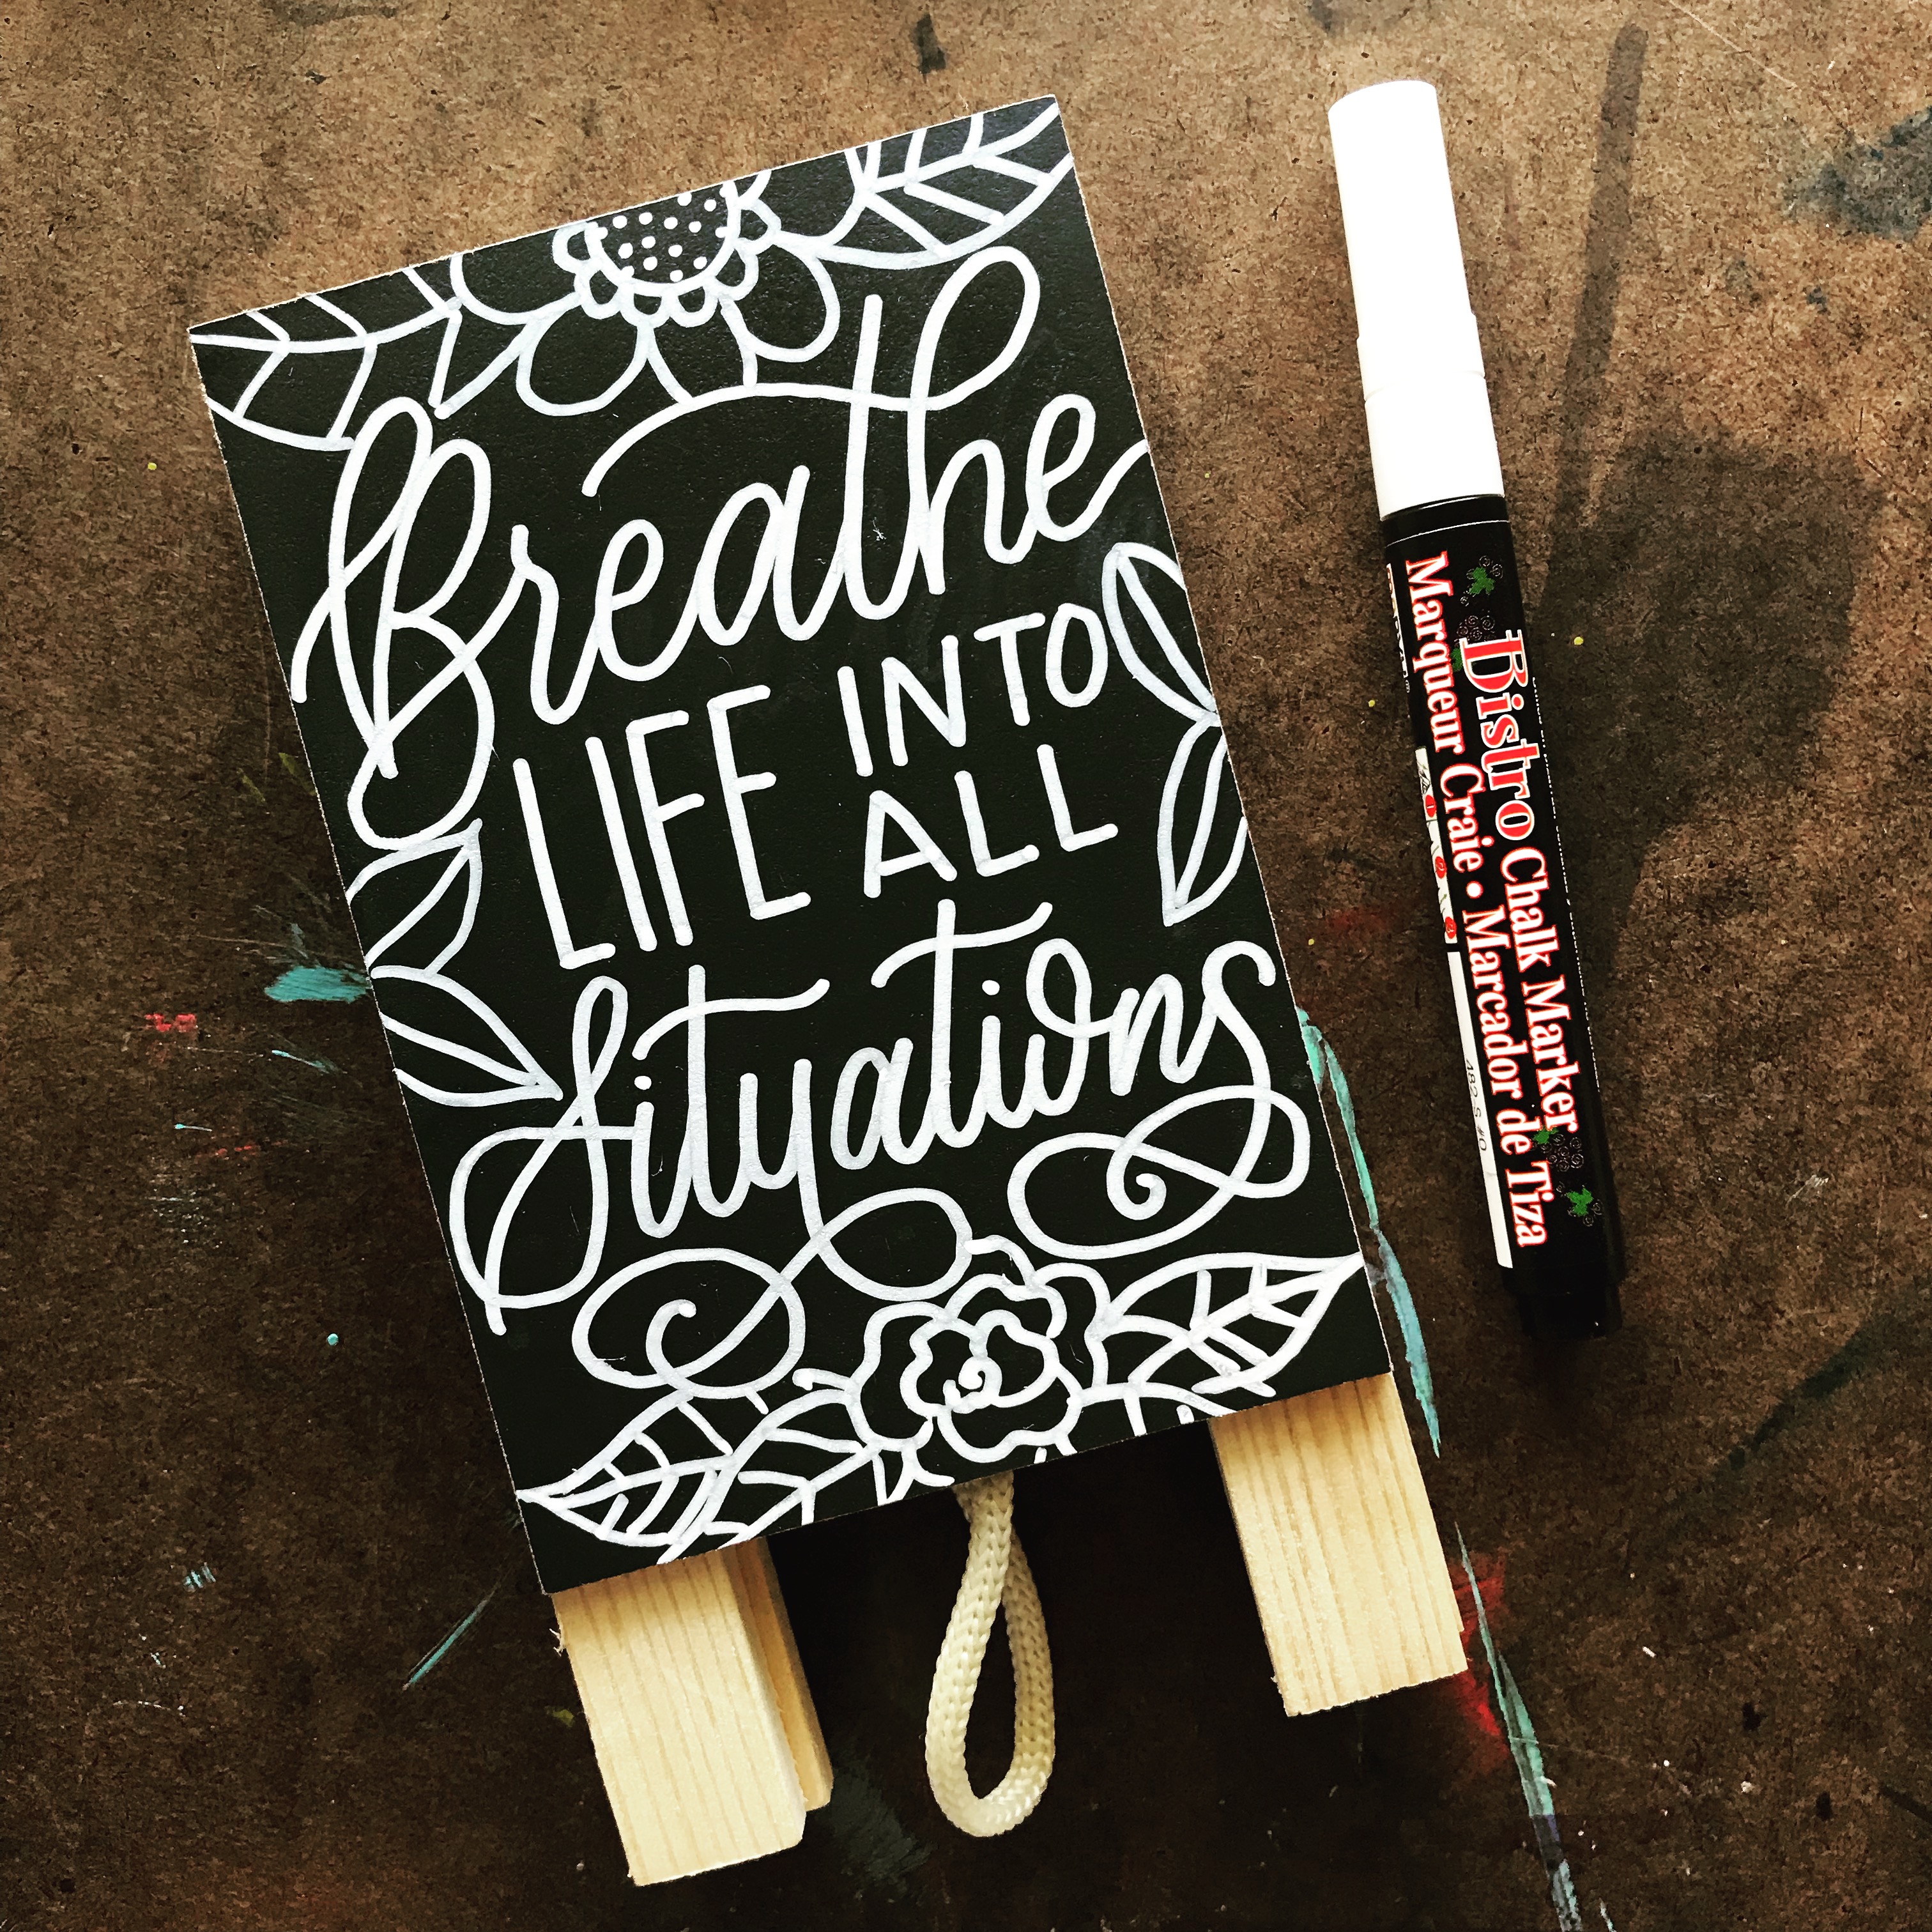 Breathe
LIFE INTO
ALL
Situations
Bistro Chalk Marker
Marqueur Craie • Marcador de Tiza